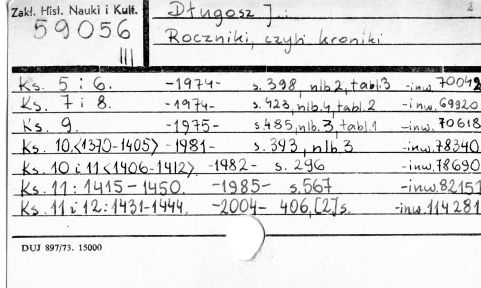 Zakł. Hist. Nauki i Kult.
59056
III
Długosz J..
2
Roczniki, czyli kroniki
Ks. 5 i 6. -1974- s. 398, nlb 2, tabl. 3 -inw. 70042
Ks. 7 i 8. -1974- s. 423, nlb. 4, tabl. 2 -inw. 69920
Ks. 9. -1975- s. 485, nlb. 3, tabl. 1 -inw. 70618
Ks. 10. <1370-1405> -1981- s. 393, nlb 3 -inw. 78340
Ks. 10 i 11 <1406-1412> -1982- s. 296 -inw. 78690
Ks. 11: 1415-1450. -1985- s. 567 -inw. 82151
Ks. 11 i 12: 1431-1444. -2004- 406, [2] s. -inw. 114281
DUJ 897/73. 15000